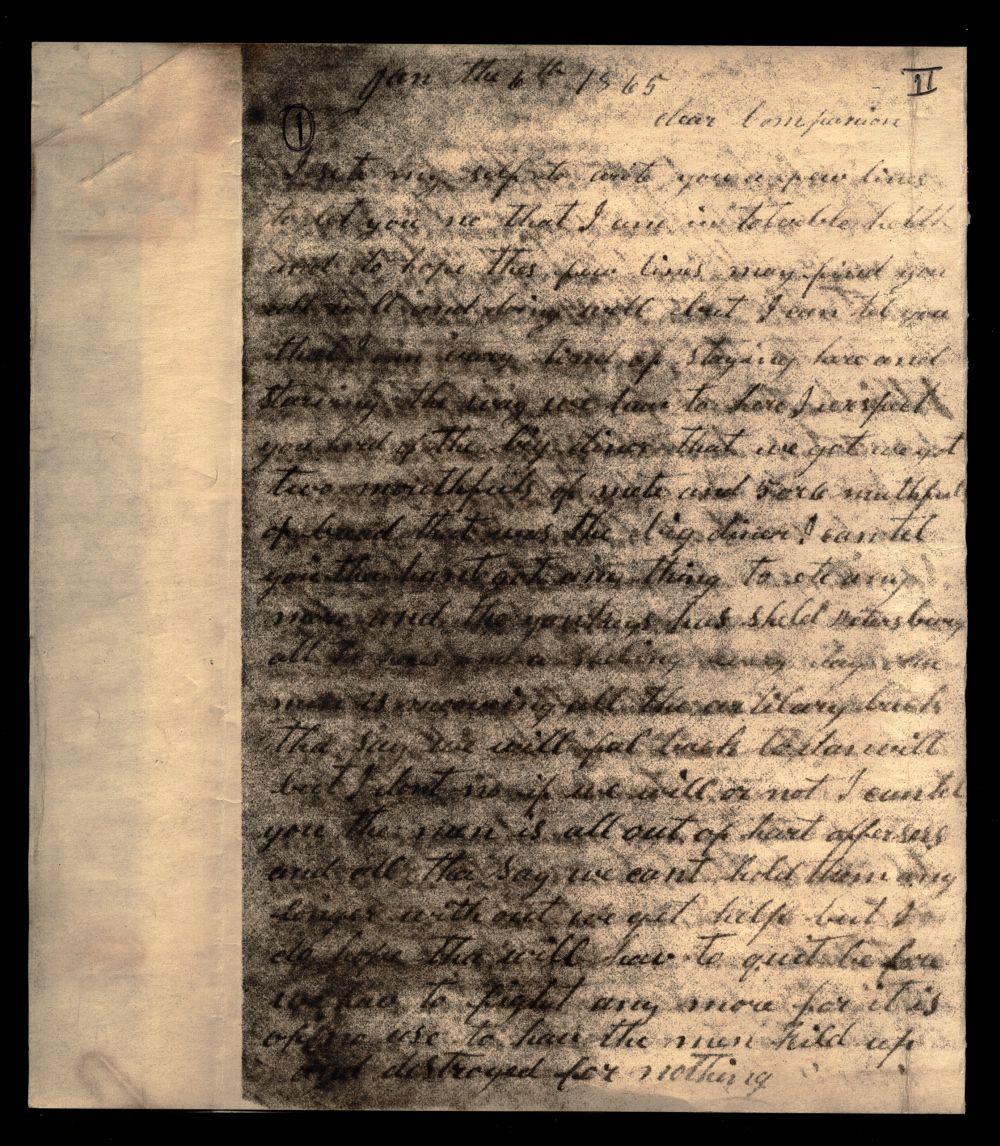 Jan the 6th 1865
II
1
dear Companion
I sete my self to write you a few lines
to let you no that I am in tolable helth
and do hope thes few lines may find you
all well and doing well but I can tel you
that I am wary tired of staying here and
starving the way we have to here I expect
you herd of the big diner that we got we got
two mouthfuls of mete and 5 or 6 muthfuls
of bread that was the big diner I can tel
you tha hant got any thing to ete any
more and the yankeys has sheld petersburg
all to and a every day
men is mooving all the artilary back
tha say we will fal back to danvill
but I dont no if we will or not I can tel
you the men is all out of hart offersers
and all tha say we cant hold them any
longer with out we get help but I
do hope tha will hav to quit be fore
we hav to fight any more for it is
of no use to hav the men kild up
and destroyed for nothing